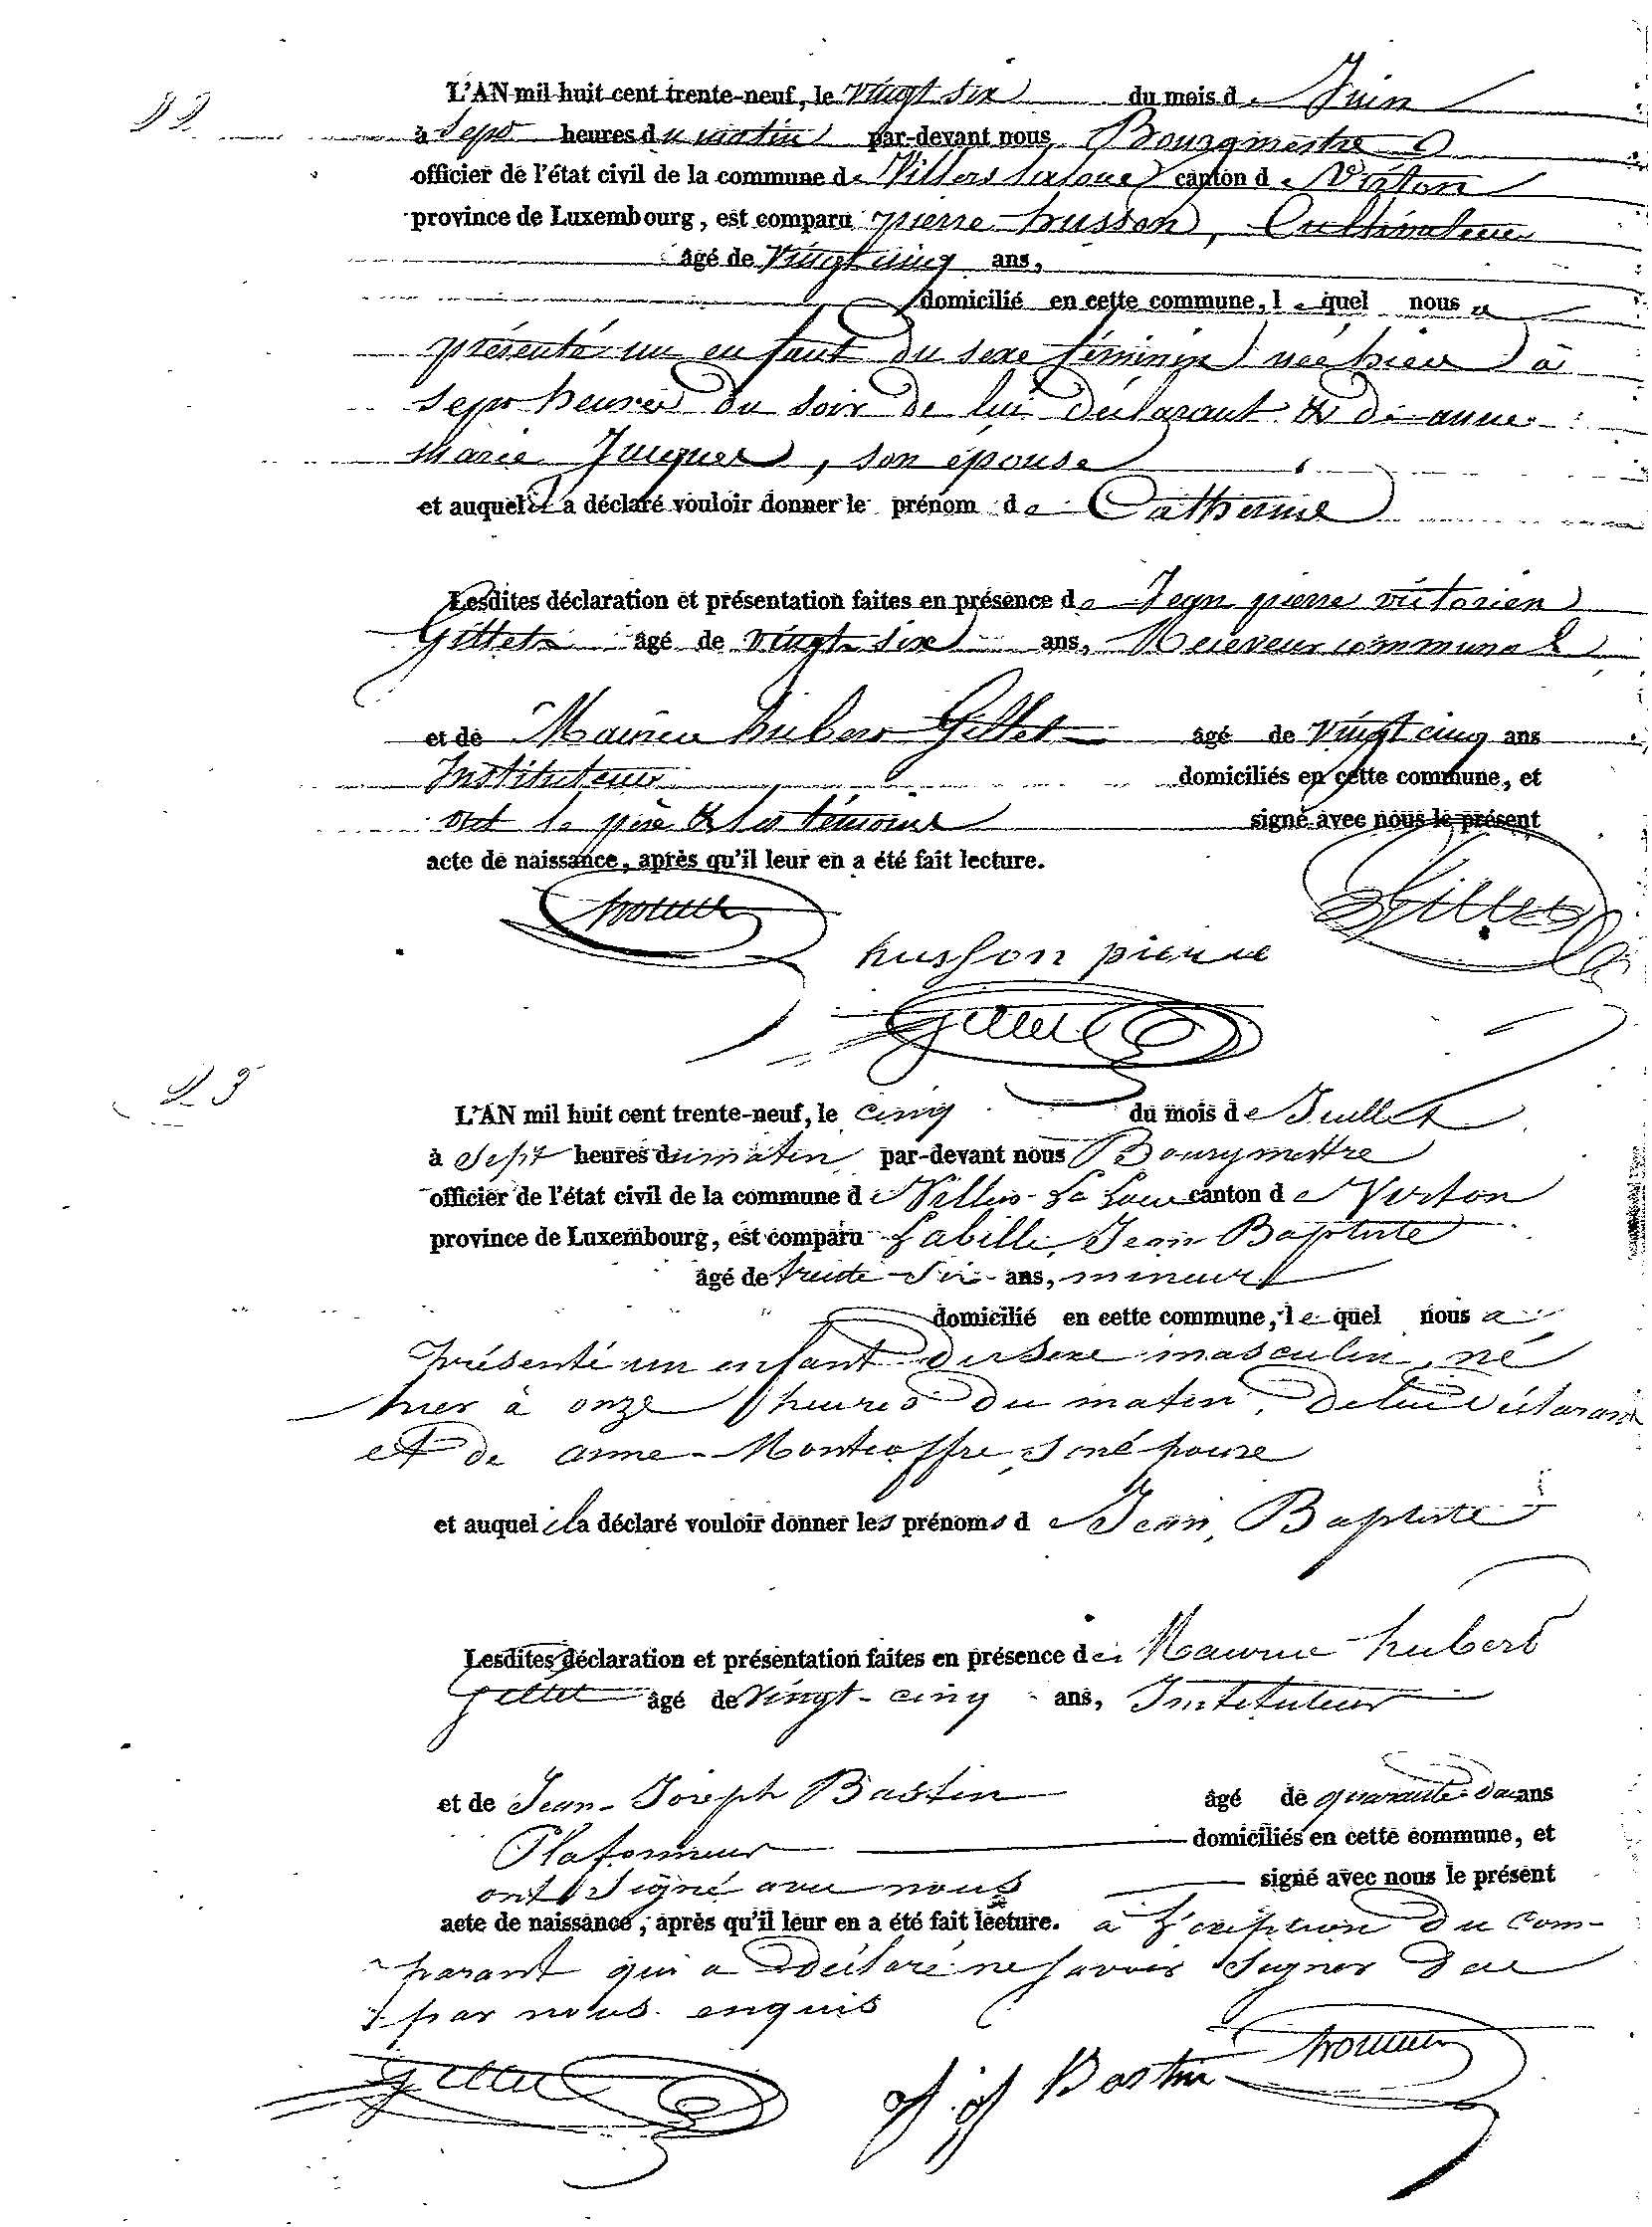 22
L'AN mil huit cent trente-neuf, le vingt six du mois de Juin
à sept heures du matin par-devant nous Bourgmestre
officier de l'état civil de la commune de Villers la loue canton de Virton
province de Luxembourg, est comparu pierre husson, Cultivateur
âgé de vingt cinq ans,
domicilié en cette commune, le quel nous a
présenté un enfant du sexe féminin née hier à
sept heures du soir de lui déclarant & de anne
marie Jacques, son épouse
et auquel il a déclaré vouloir donner le prénom de Catherine
Lesdites déclaration et présentation faites en présence de Jean pierre victorien
Gillet âgé de vingt six ans, Receveur communal
et de Maurice hubert Gillet âgé de vingt cinq ans
Instituteur domiciliés en cette commune, et
ont le père & les témoins signé avec nous le présent
acte de naissance, après qu'il leur en a été fait lecture.
Gillet
husson pierre
Gillet
23
L'AN mil huit cent trente-neuf, le cinq du mois de Juillet
à sept heures du matin par-devant nous Bourgmestre
officier de l'état civil de la commune de Villers-La Loue canton de Virton
province de Luxembourg, est comparu Labille Jean Baptiste
âgé de trente-six ans, mineur
domicilié en cette commune, le quel nous a
présenté un enfant du sexe masculin, né
hier à onze heures du matin, de lui déclarant
et de anne Montcoffre, son épouse
et auquel il a déclaré vouloir donner les prénoms de Jean, Baptiste
Lesdites déclaration et présentation faites en présence de Maurice hubert
gillet âgé de vingt-cinq ans, Instituteur
et de Jean-Joseph Bastin âgé de quarante-deux ans
Plafonneur domiciliés en cette commune, et
ont signé avec nous signé avec nous le présent
acte de naissance, après qu'il leur en a été fait lecture. a L'exception du com-
parant qui a déclaré ne savoir signer de ce
par nous enquis
Gillet
J. J. Bastin